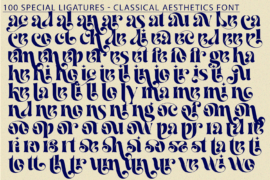 100 SPECIAL LIGATURES - CLASSICAL AESTHETICS FONT
ac ad al an ar as at au av be ca
ce co ct ch de di ea ec ed ee el
em en ep er es et fe fo fr ga ha
he hi ho ic ie il in io ir is it
ka le li ll lo ly ma me mi
nd ne no ns ni ng oc of om on
oo op or ot ow pa pr ra
ri ro rs rt se sh so ss st ta te ti
to tt th ir um un ur ve wo